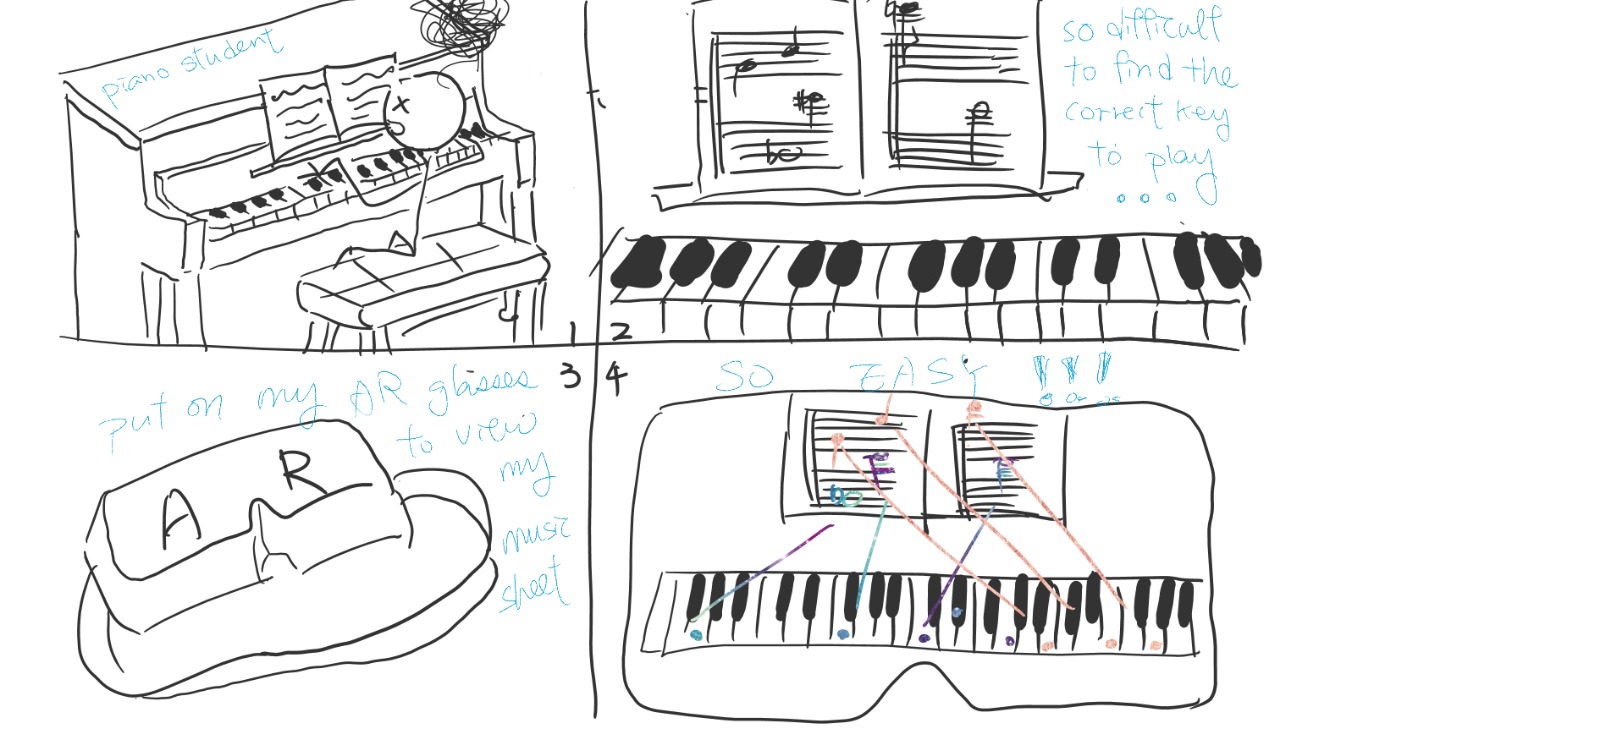 piano student
1
so difficult
to find the
correct key
to play
...
2
3
put on my AR glasses
to view
my
music
sheet
A R
4
SO EASY !!!